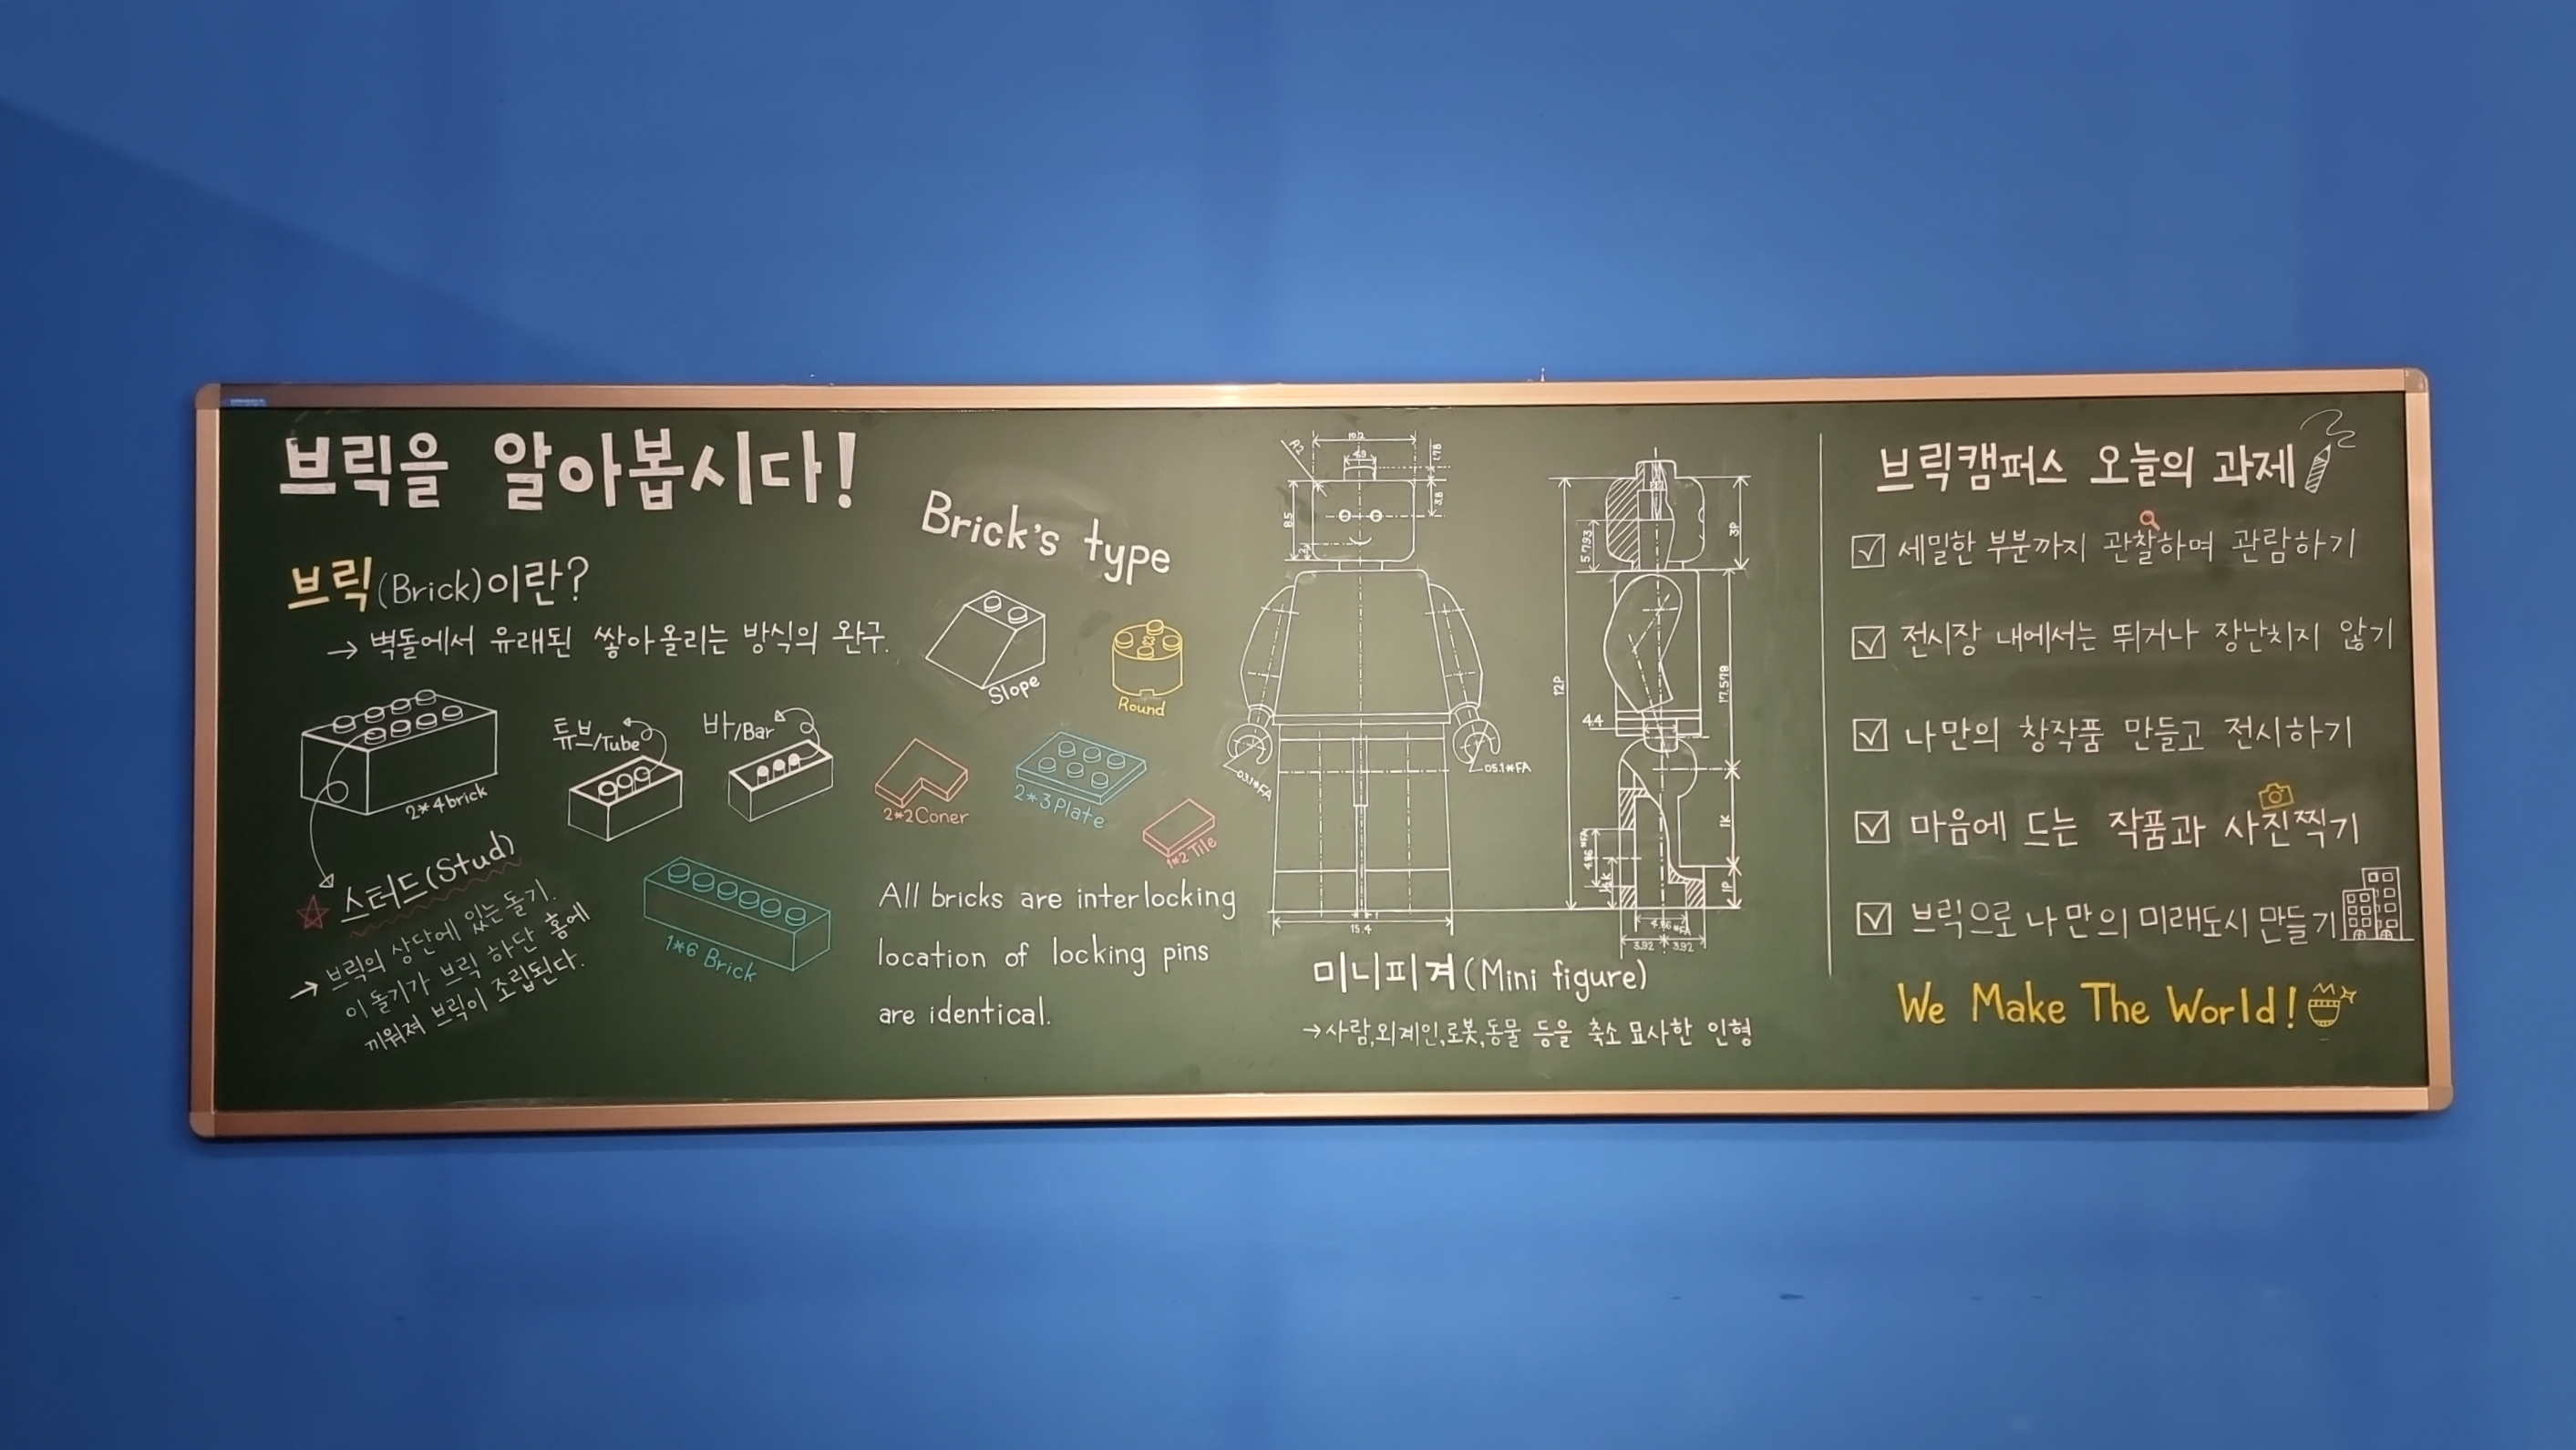 브릭을 알아봅시다!
브릭(Brick)이란?
→ 벽돌에서 유래된 쌓아올리는 방식의 완구.
2*4brick
튜브/Tube
바/Bar
☆ 스터드(Stud)
→ 브릭의 상단에 있는 돌기.
이 돌기가 브릭 하단 홈에
끼워져 브릭이 조립된다.
1*6 Brick
Brick's type
Slope
Round
2*2Coner
2*3Plate
1*2 Tile
All bricks are interlocking
location of locking pins
are identical.
10.2
4.9
1.78
3.8
8.5
15.4
05.1*FA
57.93
3P
12P
17.578
4.4
1K
1P
3.92
3.92
미니피겨(Mini figure)
→사람,외계인,로봇,동물 등을 축소 묘사한 인형
브릭캠퍼스 오늘의 과제
☑ 세밀한 부분까지 관찰하며 관람하기
☑ 전시장 내에서는 뛰거나 장난치지 않기
☑ 나만의 창작품 만들고 전시하기
☑ 마음에 드는 작품과 사진찍기
☑ 브릭으로 나만의 미래도시 만들기
We Make The World!